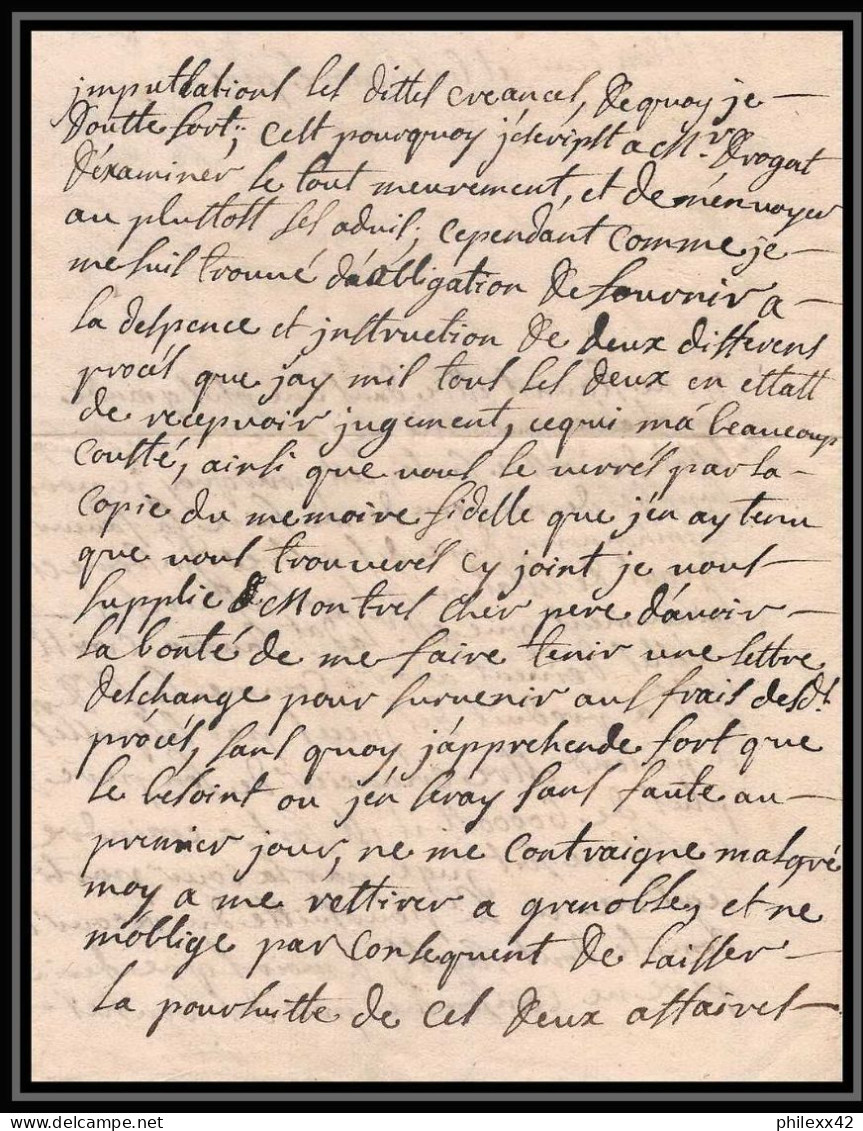 imputtations les dittes creances, de quoy je
doutte fort; c'est pourquoy j'escripst a Mr. Drogat
d'examiner le tout meurement, et de m'envoyer
au pluttost ses advis; cependant comme je
me suis trouvé d'a obligation de fournir a
la despence et jnstruction de deux differens
procés que jay mis tous les deux en ettatt
de recepvoir jugement, ce qui m'a beaucoup
coutté, ainsi que vous le verrés par la
copie du memoire fidelle que j'en ay tenu
que vous trouverés cy joint je vous
supplie Montres cher pere d'avoir
la bonté de me faire tenir une lettre
deschange pour survenir aus frais desdt.
procés, sans quoy j'apprehende fort que
le besoint ou j'en seray sans faute au
premier jour, ne me contraigne malgré
moy a me rettirer a grenoble, et ne
m'oblige par consequent de laisser
la poursuitte de ces deux affaires
philexx42